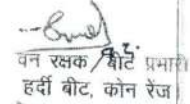 वन रक्षक / बीट प्रभारी
हर्दी बीट, कोन रेंज